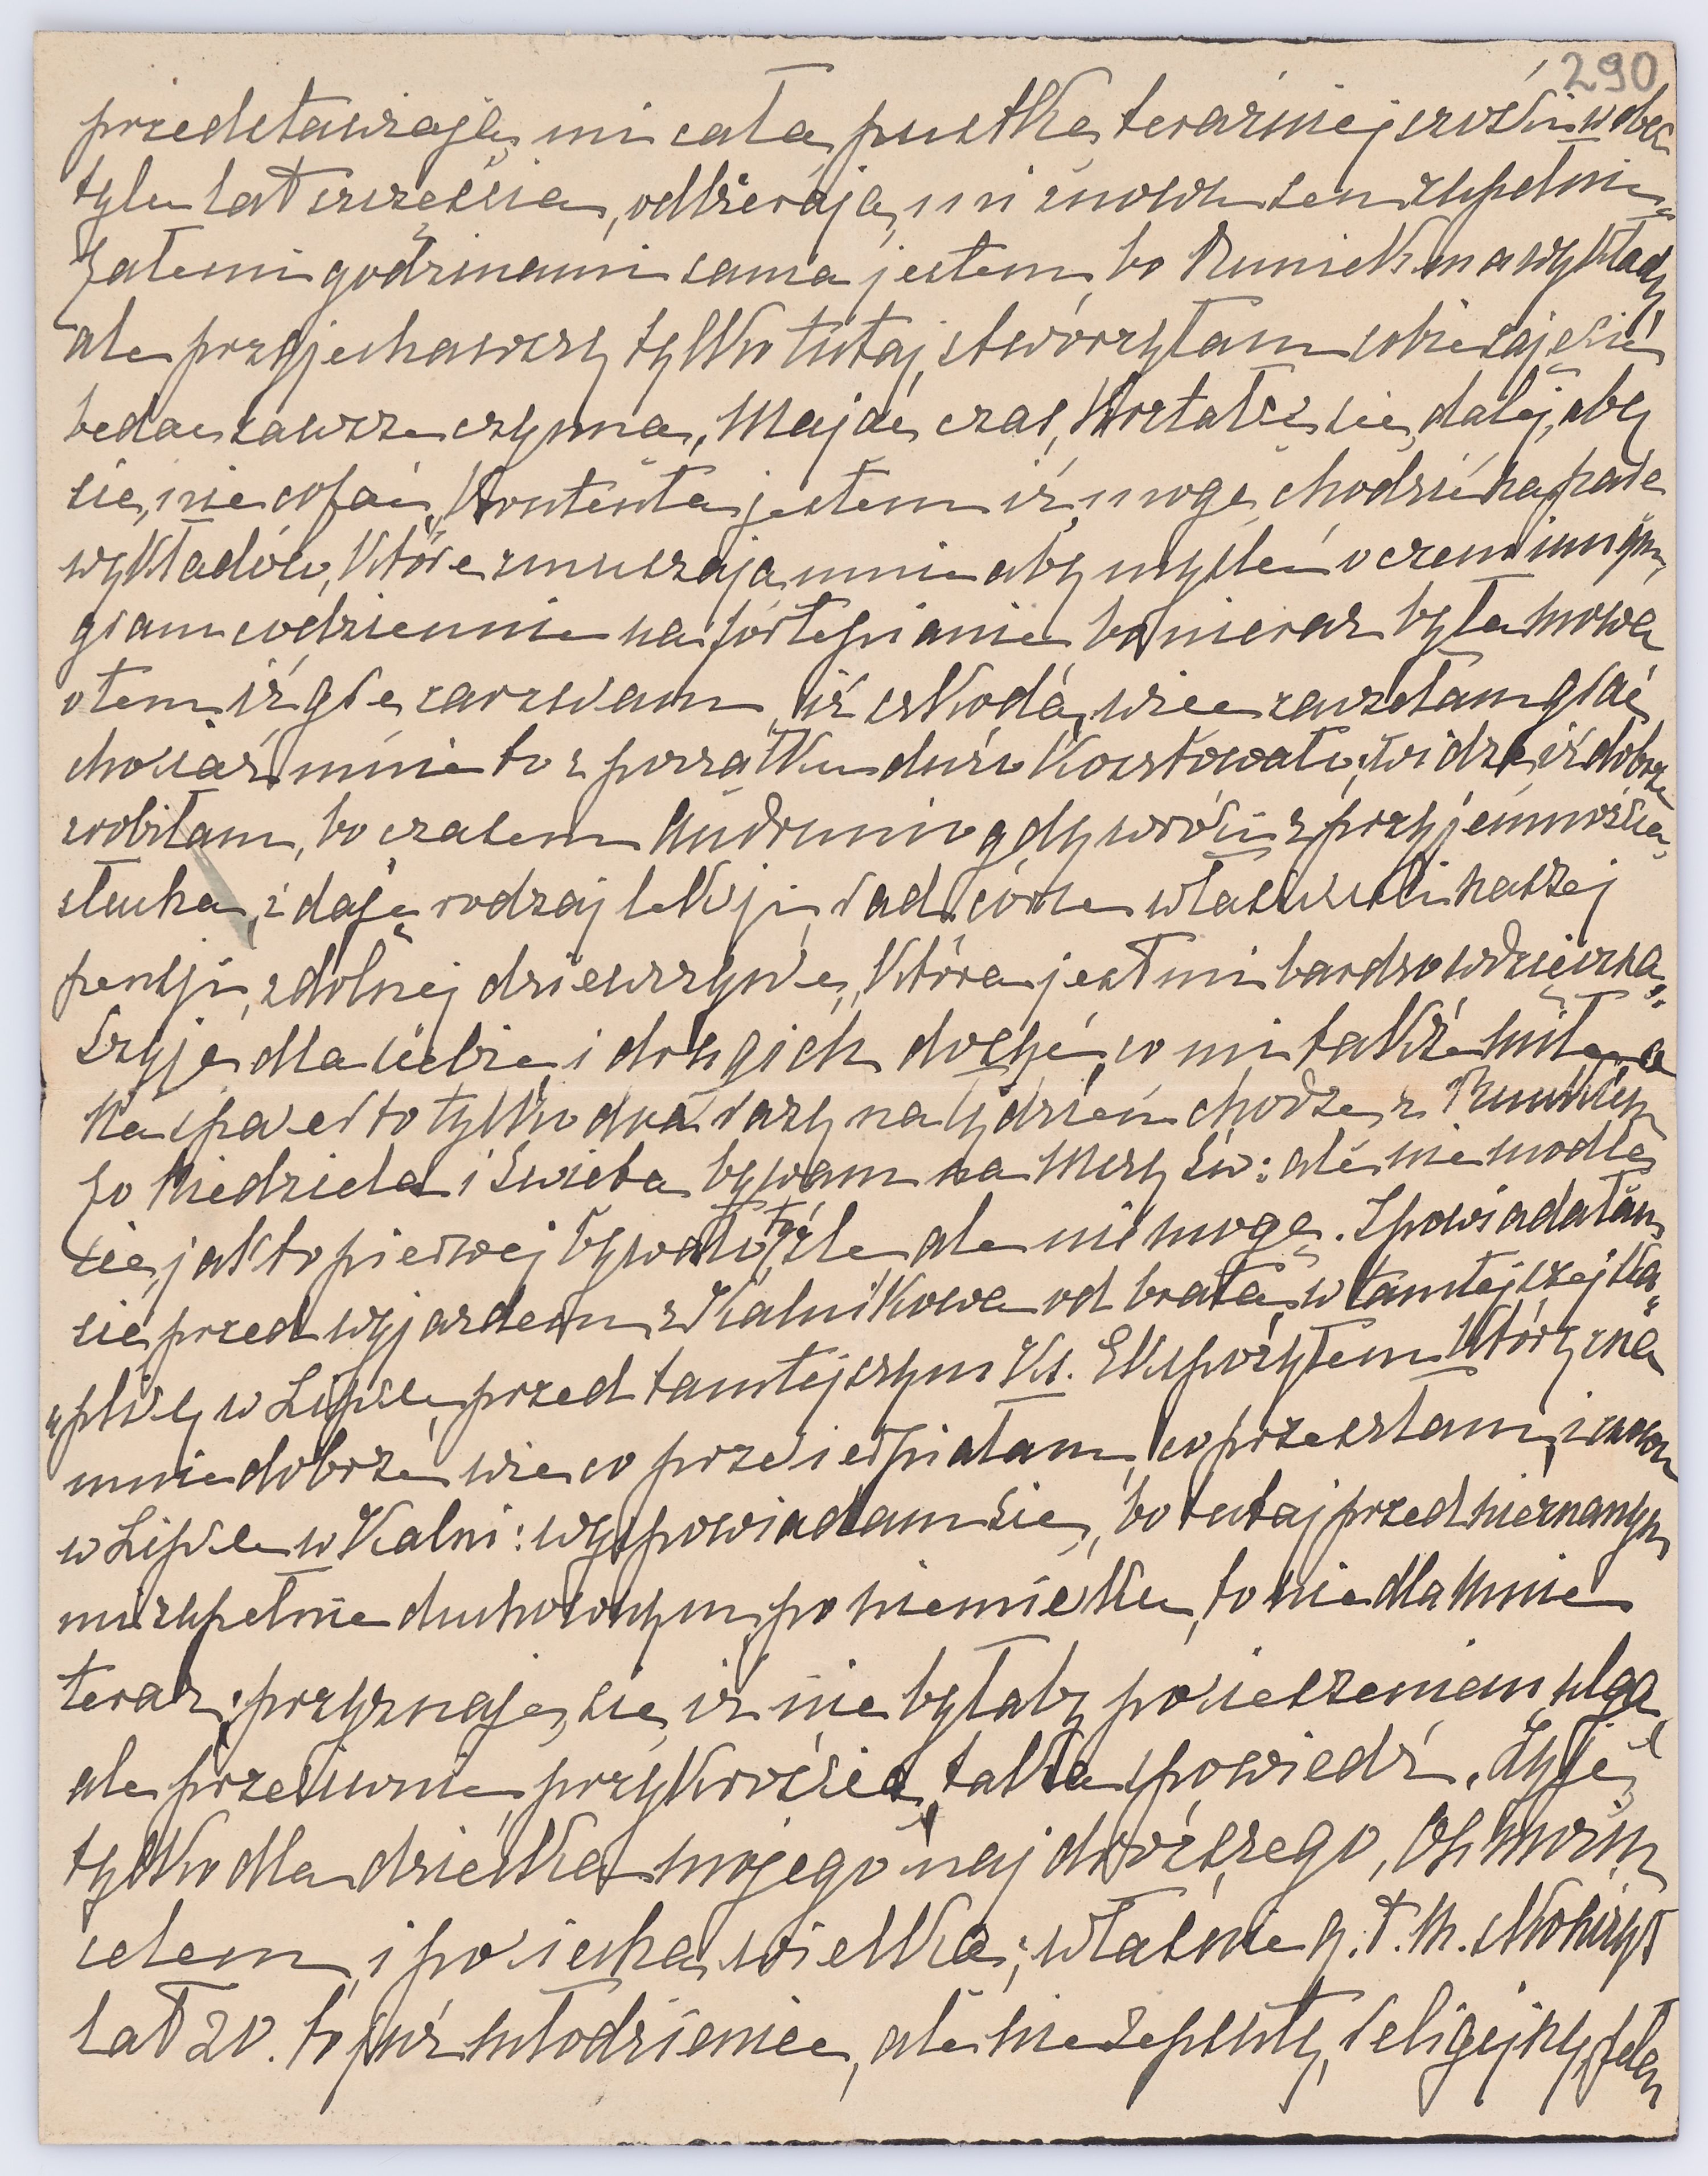 290
przedstawiają mi całą pustkę teraźniejszości wobec
tylu lat szczęścia, odbierają mi znowu sen zupełnie
Całemi godzinami sama jestem, bo Muniek ma wykłady
ale przyjechawszy tylko tutaj, stworzyłam sobie zajęcie
będąc zawsze czynną. Mając czas, kształcę się dalej, aby
się nie cofać, kontenta jestem iż mogę chodzić na parę
wykładów, które zmuszają mnie aby myśleć o czem innym,
gram codziennie na fortepianie bo nieraz była mowa
o tem iż grę zarzucam, iż szkoda, więc zaczęłam grać
chociaż mnie to z początku dużo kosztowało; widzę iż dobrze
zrobiłam, bo czasem Mudrunio gdy wróci z przyjemnością
słucha, i daję rodzaj lekcji, rad córce właścicielki naszej
pensji, zdolnej dziewczynie, która jest mi bardzo wdzięczną.
Szyję dla siebie i drugich dosyć, co mi także miłe, a
na spacer to tylko dwa razy na tydzień chodzę z Muńkiem
Co Niedziela i Święta bywam na Mszy Św: ale nie modlę
się jak to pierwej bywało, to źle ale nie mogę. Spowiadałam
się przed wyjazdem z Kalnikowa od brata, w tamtejszej ka„
„plicy w Lipsce, przed tamtejszym Ks. Ekspozytem który zna
mnie dobrze wie co przecierpiałam, co przeszłam, i znowu
w Lipsce w Kalni: wyspowiadam się, bo tutaj przed nieznanym
mi zupełnie duchownym, po niemiecku, to nie dla mnie
teraz; przyznaję się iż nie byłaby pocieszeniem, ulgą,
ale przeciwnie przykrością taka spowiedź. Żyję
tylko dla dziecka mojego najdroższego, On moim
celem, i pociechą wielką; właśnie z. t. m. skończył
lat 20. to już młodzieniec, ale nie zepsuty, religijny, pełen